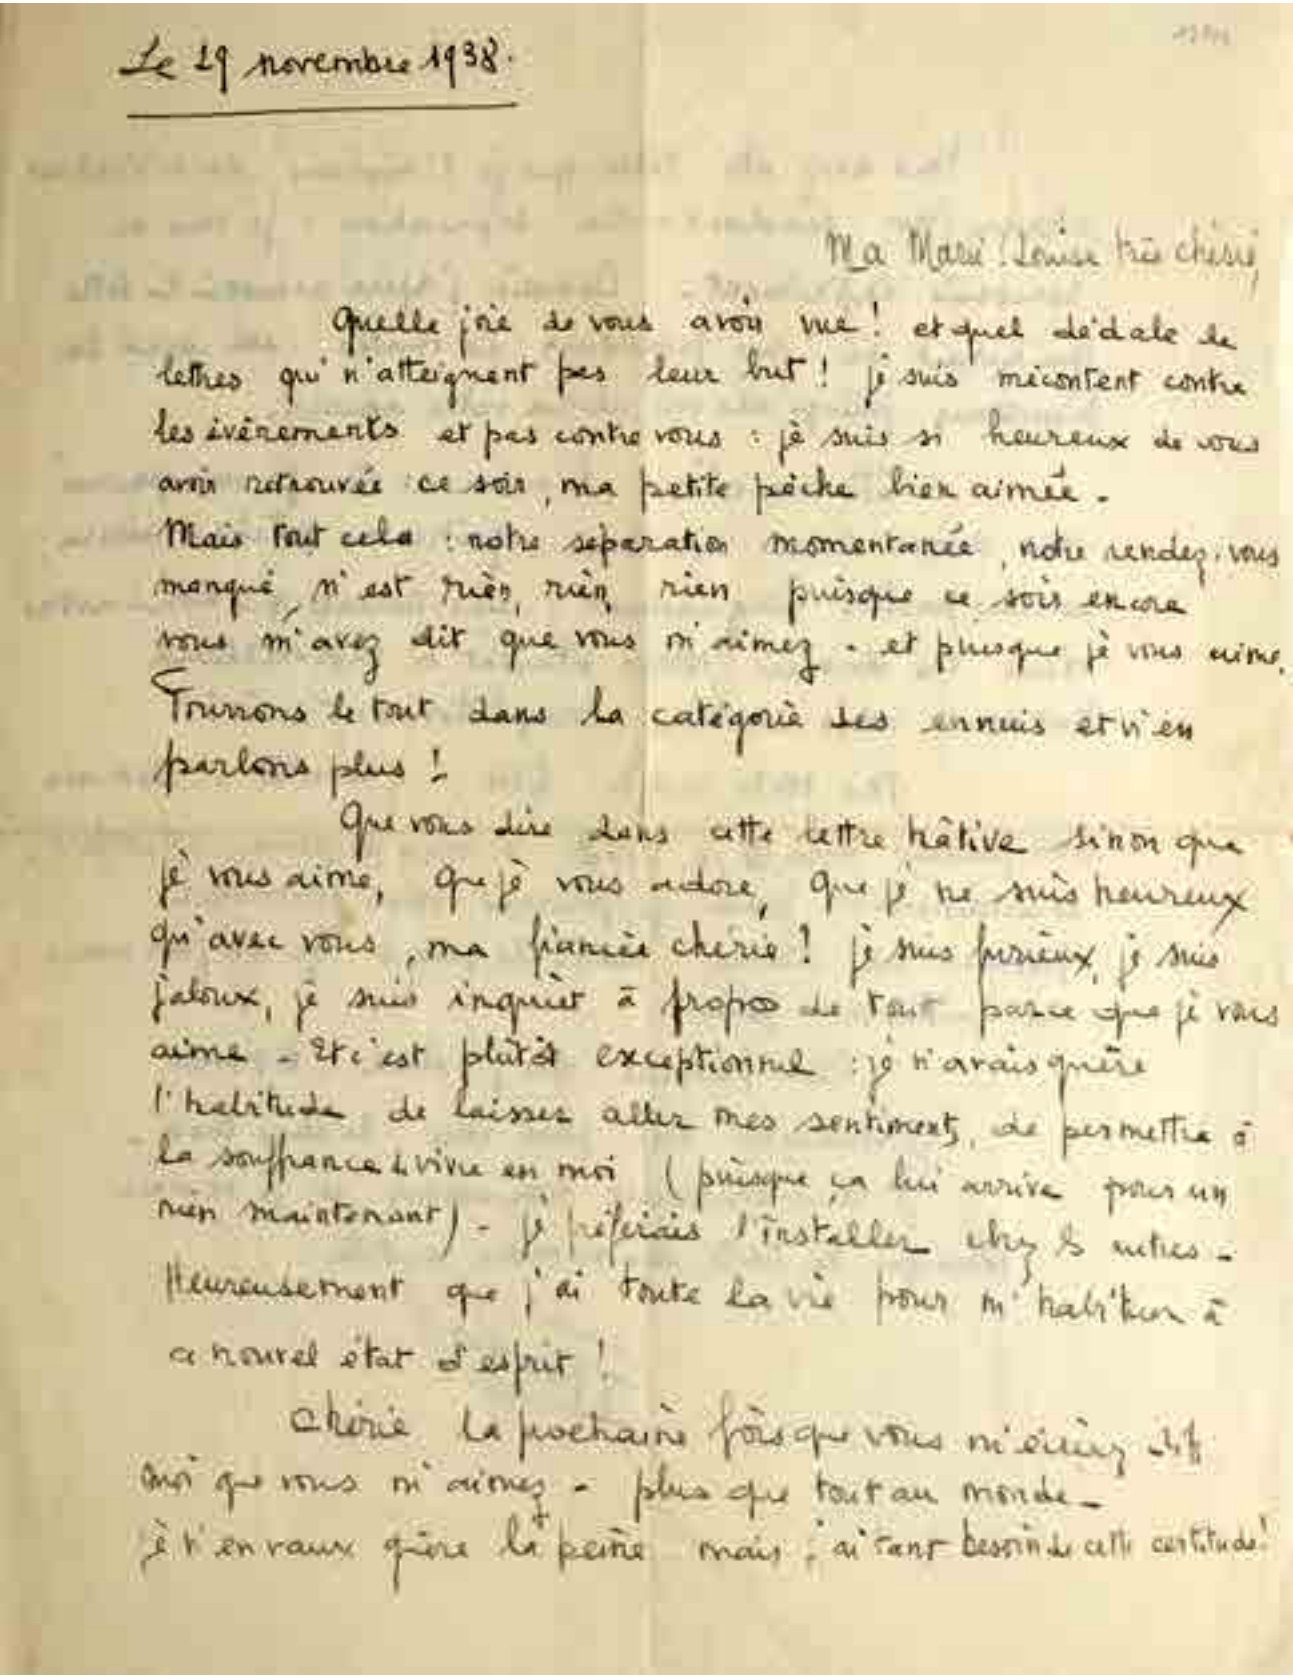 Le 29 novembre 1938.
Ma Marie-Louise très chérie,
Quelle joie de vous avoir vue ! et quel dédale de
lettres qui n'atteignent pas leur but ! je suis mécontent contre
les évènements et pas contre vous : je suis si heureux de vous
avoir retrouvée ce soir, ma petite pêche bien aimée.
Mais tout cela : notre séparation momentanée, notre rendez-vous
manqué, n'est rien, rien, rien puisque ce soir encore
vous m'avez dit que vous m'aimez - et puisque je vous aime.
Fourrons le tout dans la catégorie des ennuis et n'en
parlons plus !
Que vous dire dans cette lettre hâtive sinon que
je vous aime, que je vous adore, que je ne suis heureux
qu'avec vous, ma fiancée chérie ! je suis furieux, je suis
jaloux, je suis inquiet à propos de tout parce que je vous
aime - Et c'est plutôt exceptionnel : je n'avais guère
l'habitude de laisser aller mes sentiments, de permettre à
la souffrance de vivre en moi (puisque ça lui arrive pour un
rien maintenant) - je préférais l'installer chez les autres -
Heureusement que j'ai toute la vie pour m'habituer à
ce nouvel état d'esprit !
Chérie la prochaine fois que vous m'écrirez dites
moi que vous m'aimez - plus que tout au monde -
je n'en vaux guère la peine mais j'ai tant besoin de cette certitude !